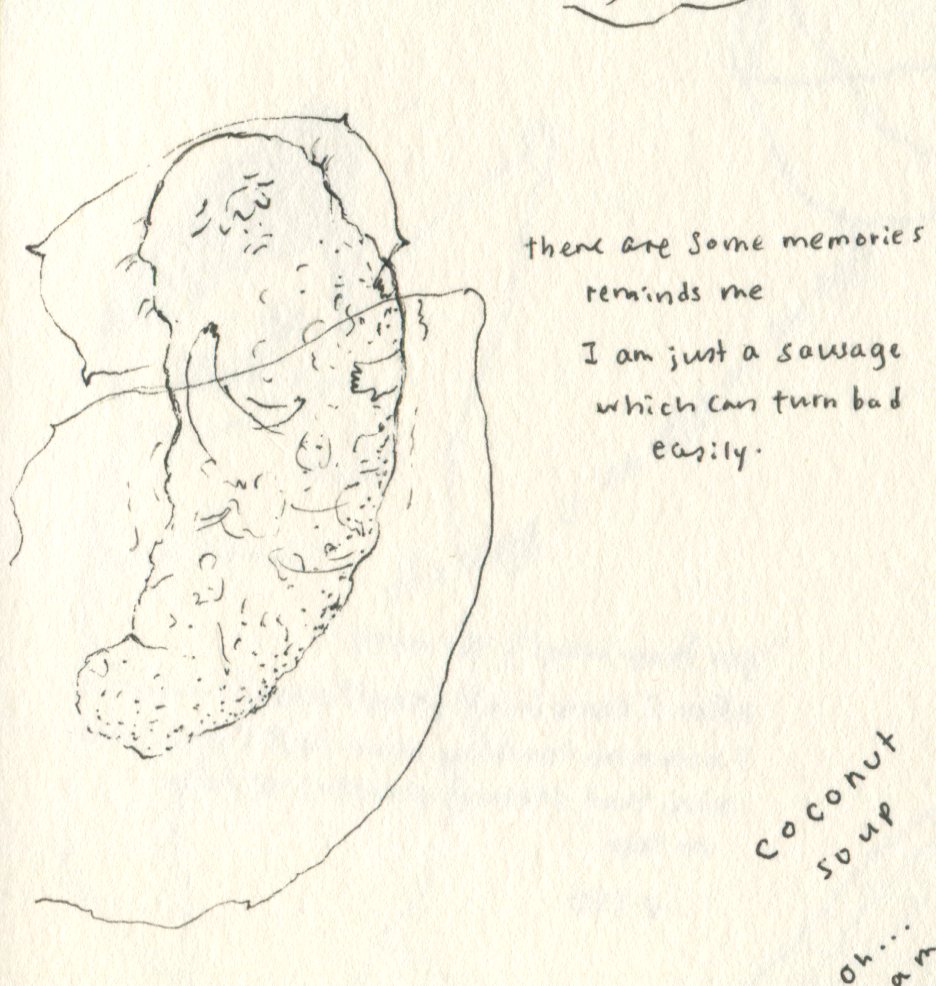 there are some memories
reminds me
I am just a sausage
which can turn bad
easily.
coconut
soup
oh...
am